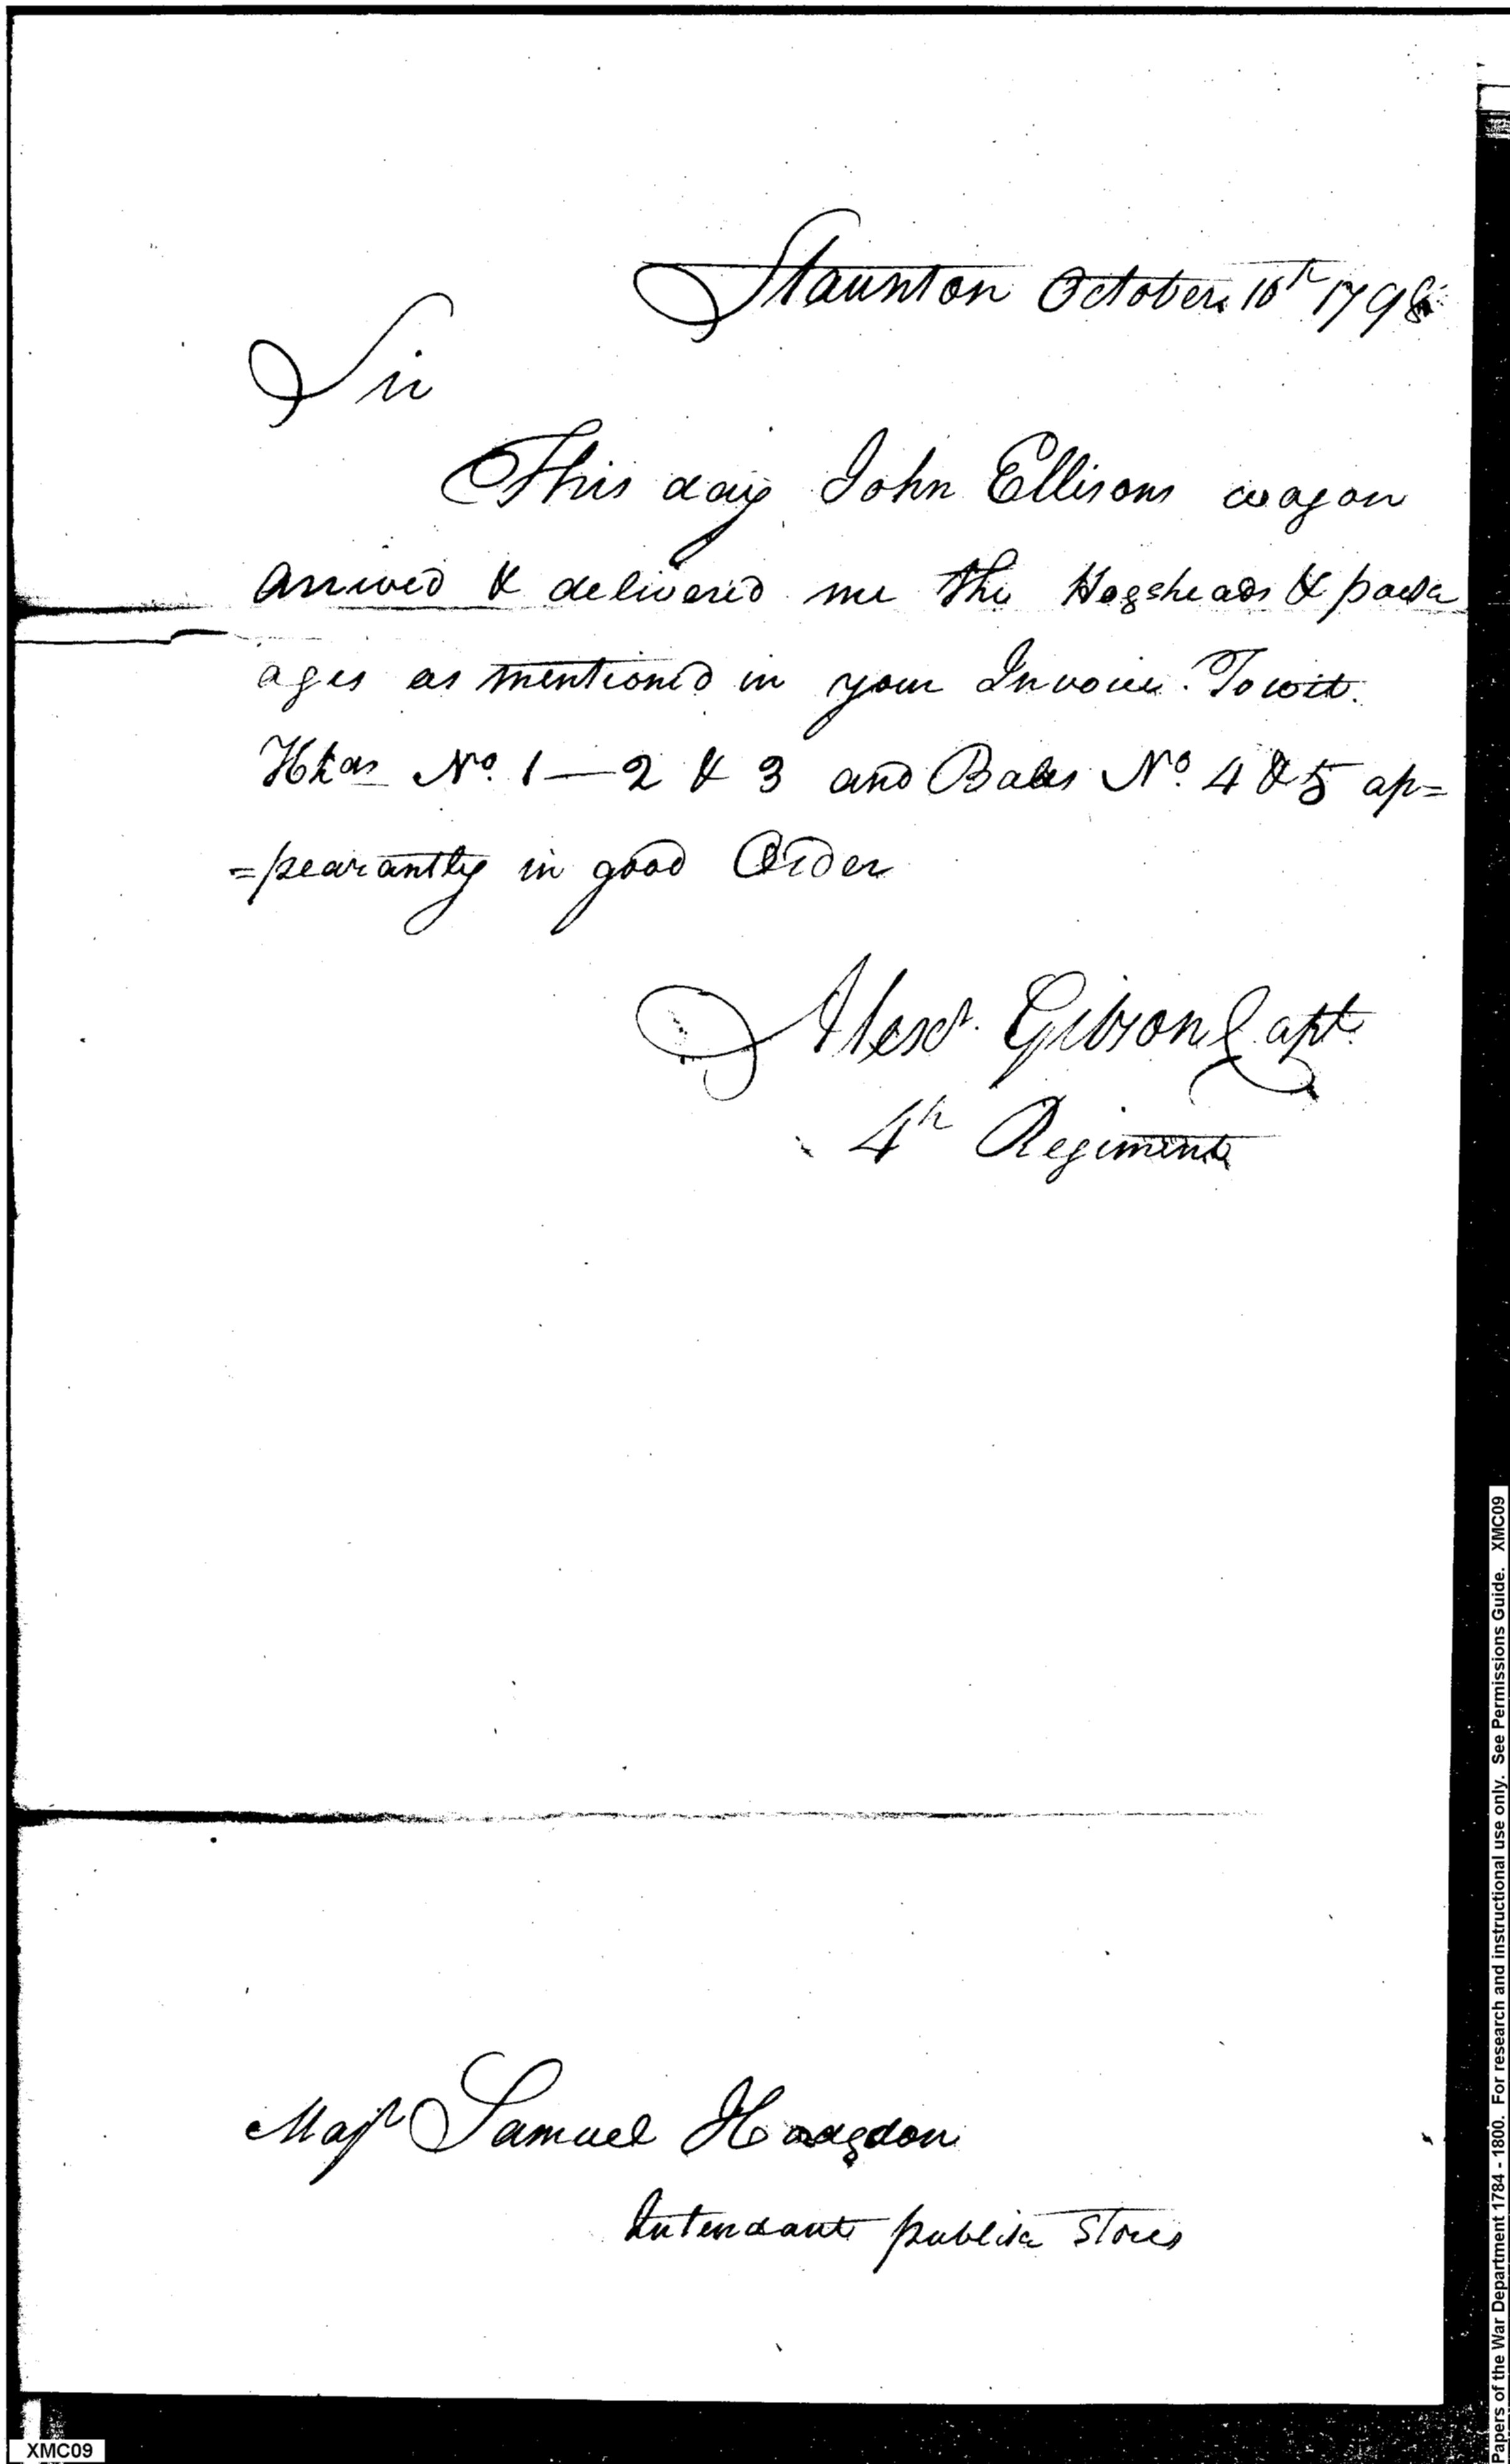 Staunton October 10th 1798
Sir
This day John Ellisons wagon
arrived & delivered me the Hogsheads & pack
ages as mentioned in your Invoice. Towit.
Hhds No. 1—2 & 3 and Bales No. 4 & 5 ap=
=pearantly in good Order
Alexr. Gibson Capt.
4th Regiment
Majr Samuel Hodgdon
Intendant publick Stores
XMC09
Papers of the War Department 1784 - 1800. For research and instructional use only. See Permissions Guide. XMC09